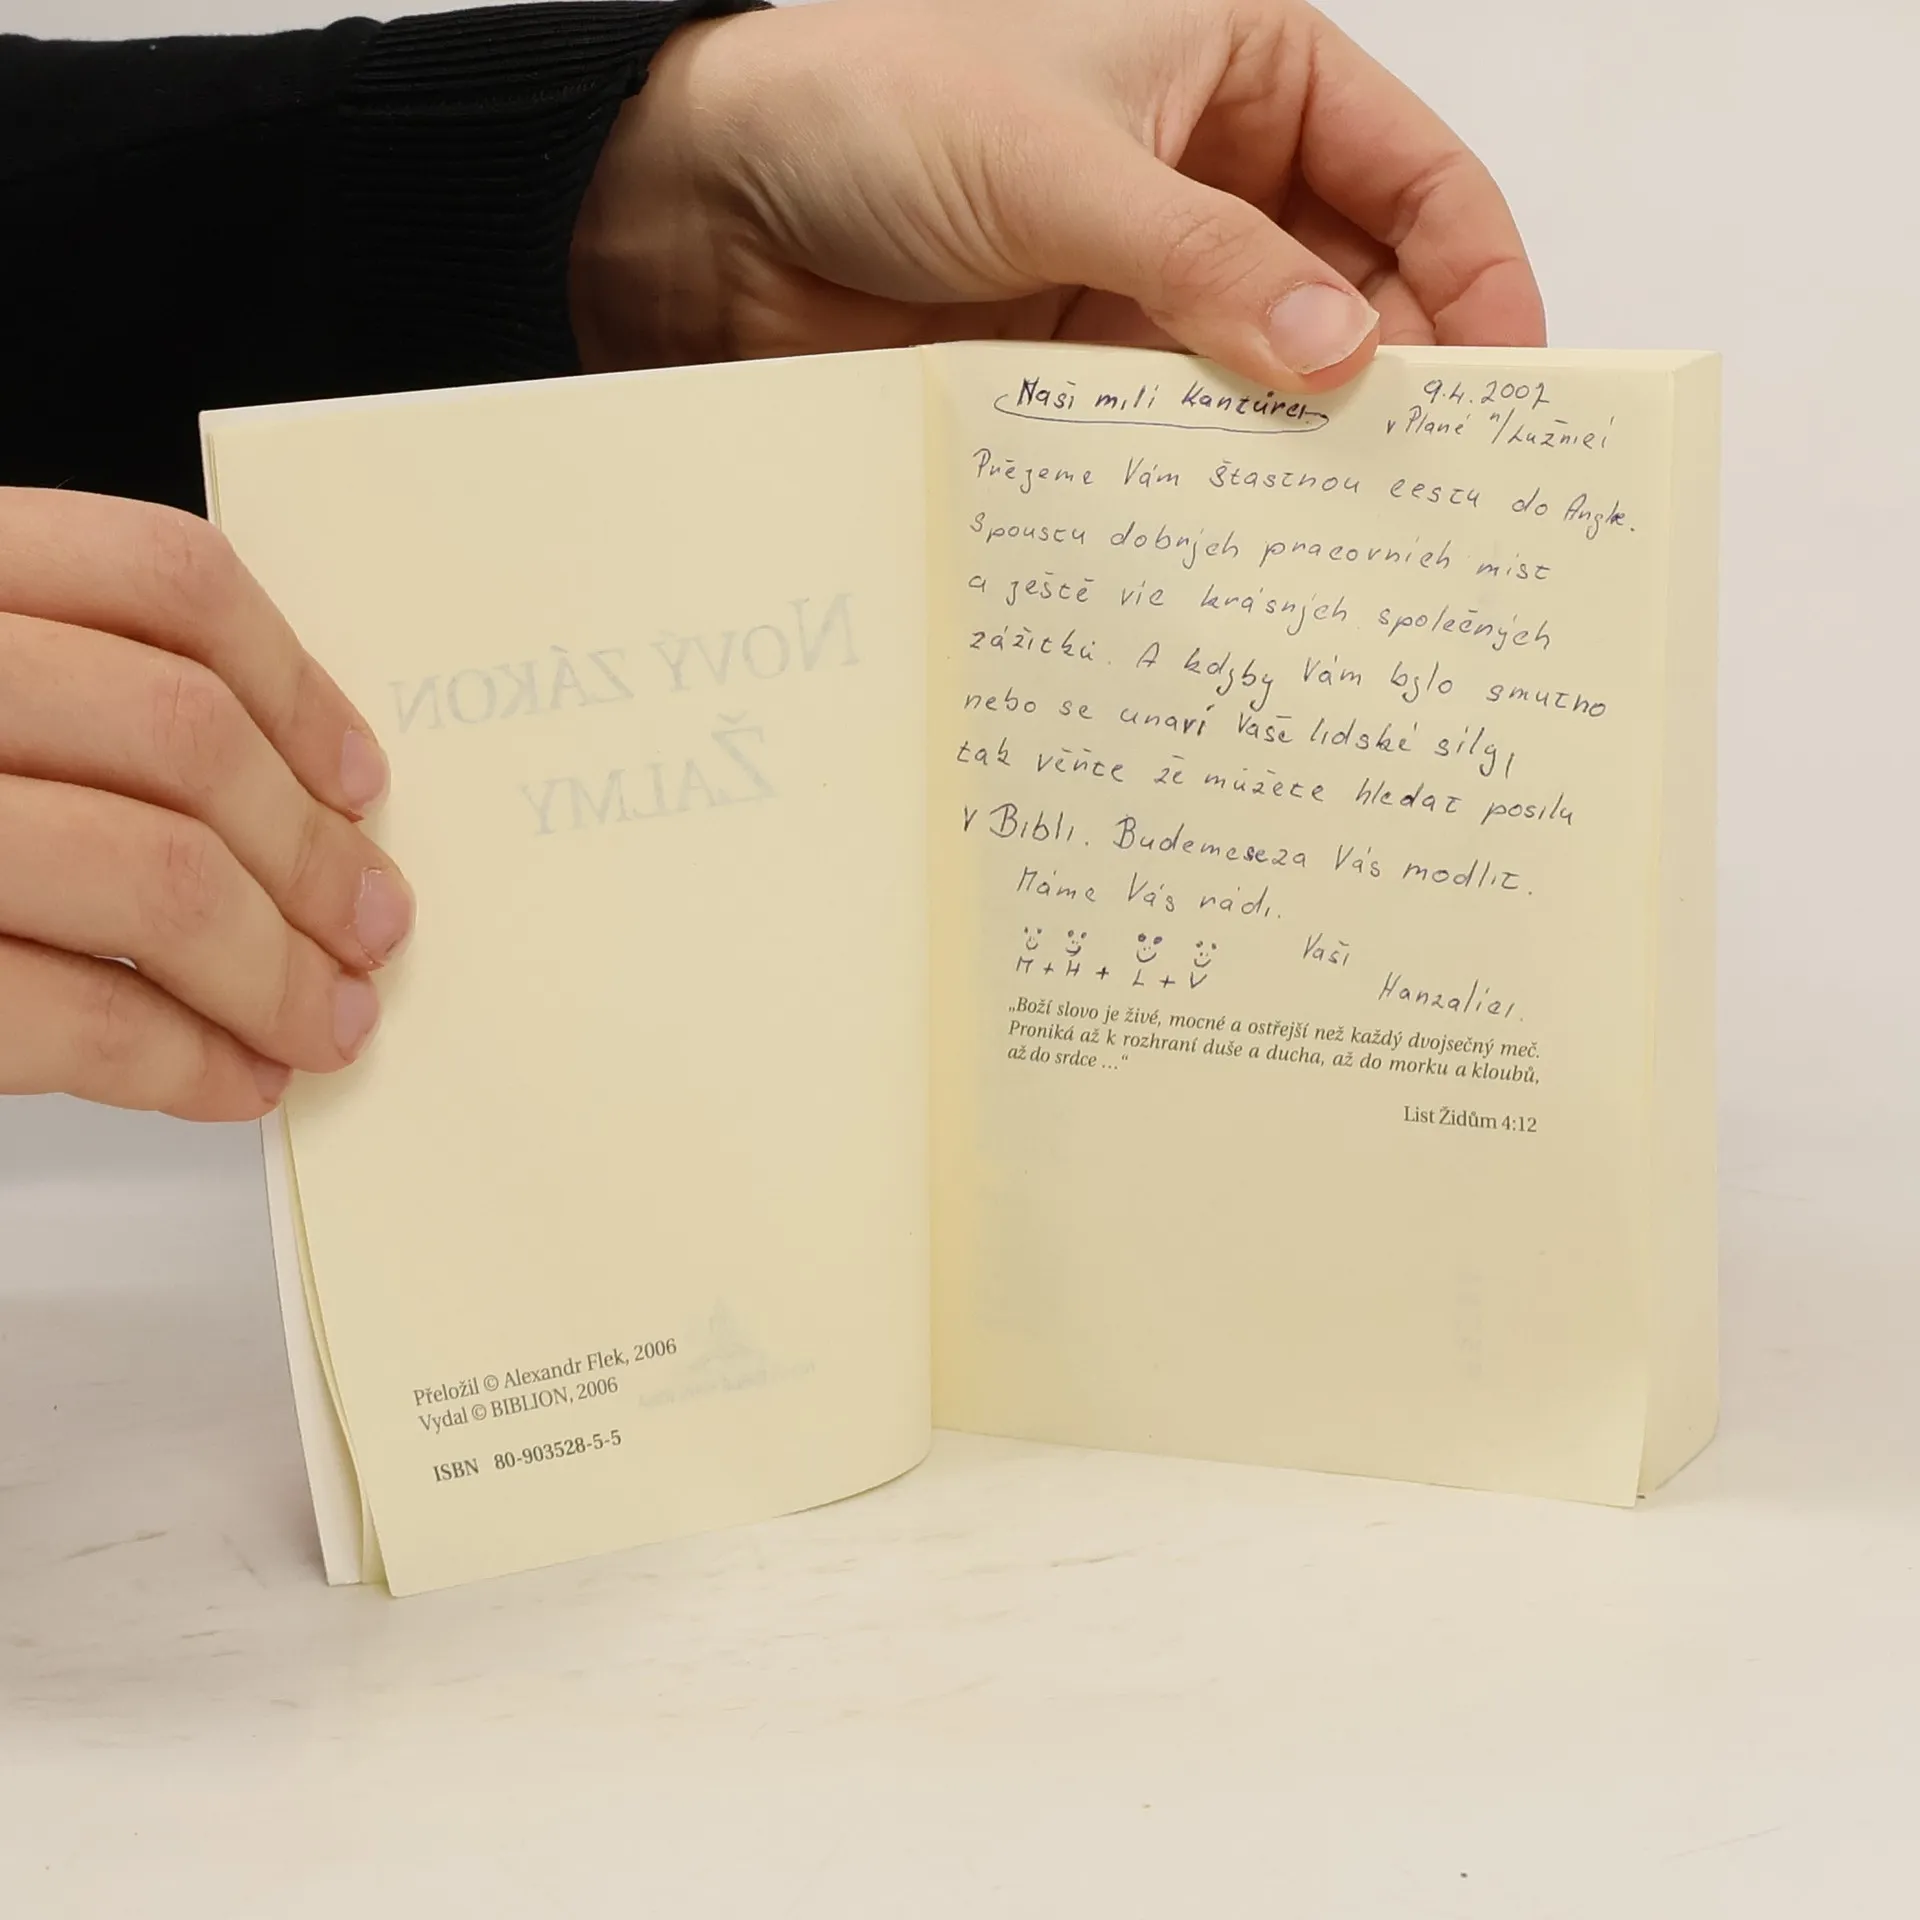 NOVÝ ZÁKON
ŽALMY
Přeložil © Alexandr Flek, 2006
Vydal © BIBLION, 2006
ISBN 80-903528-5-5
Naši milí Kantůrci
9.4.2007
v Plané n/Lužnicí
Přejeme Vám štastnou cestu do Anglie.
Spoustu dobrých pracovních míst
a ještě víc krásných společných
zážitků. A kdyby Vám bylo smutno
nebo se unaví Vaše lidské síly,
tak věřte že můžete hledat posilu
v Bibli. Budeme se za Vás modlit.
Máme Vás rádi.
M + H + L + V
Vaši
Hanzalici.
„Boží slovo je živé, mocné a ostřejší než každý dvojsečný meč.
Proniká až k rozhraní duše a ducha, až do morku a kloubů,
až do srdce ...“
List Židům 4:12